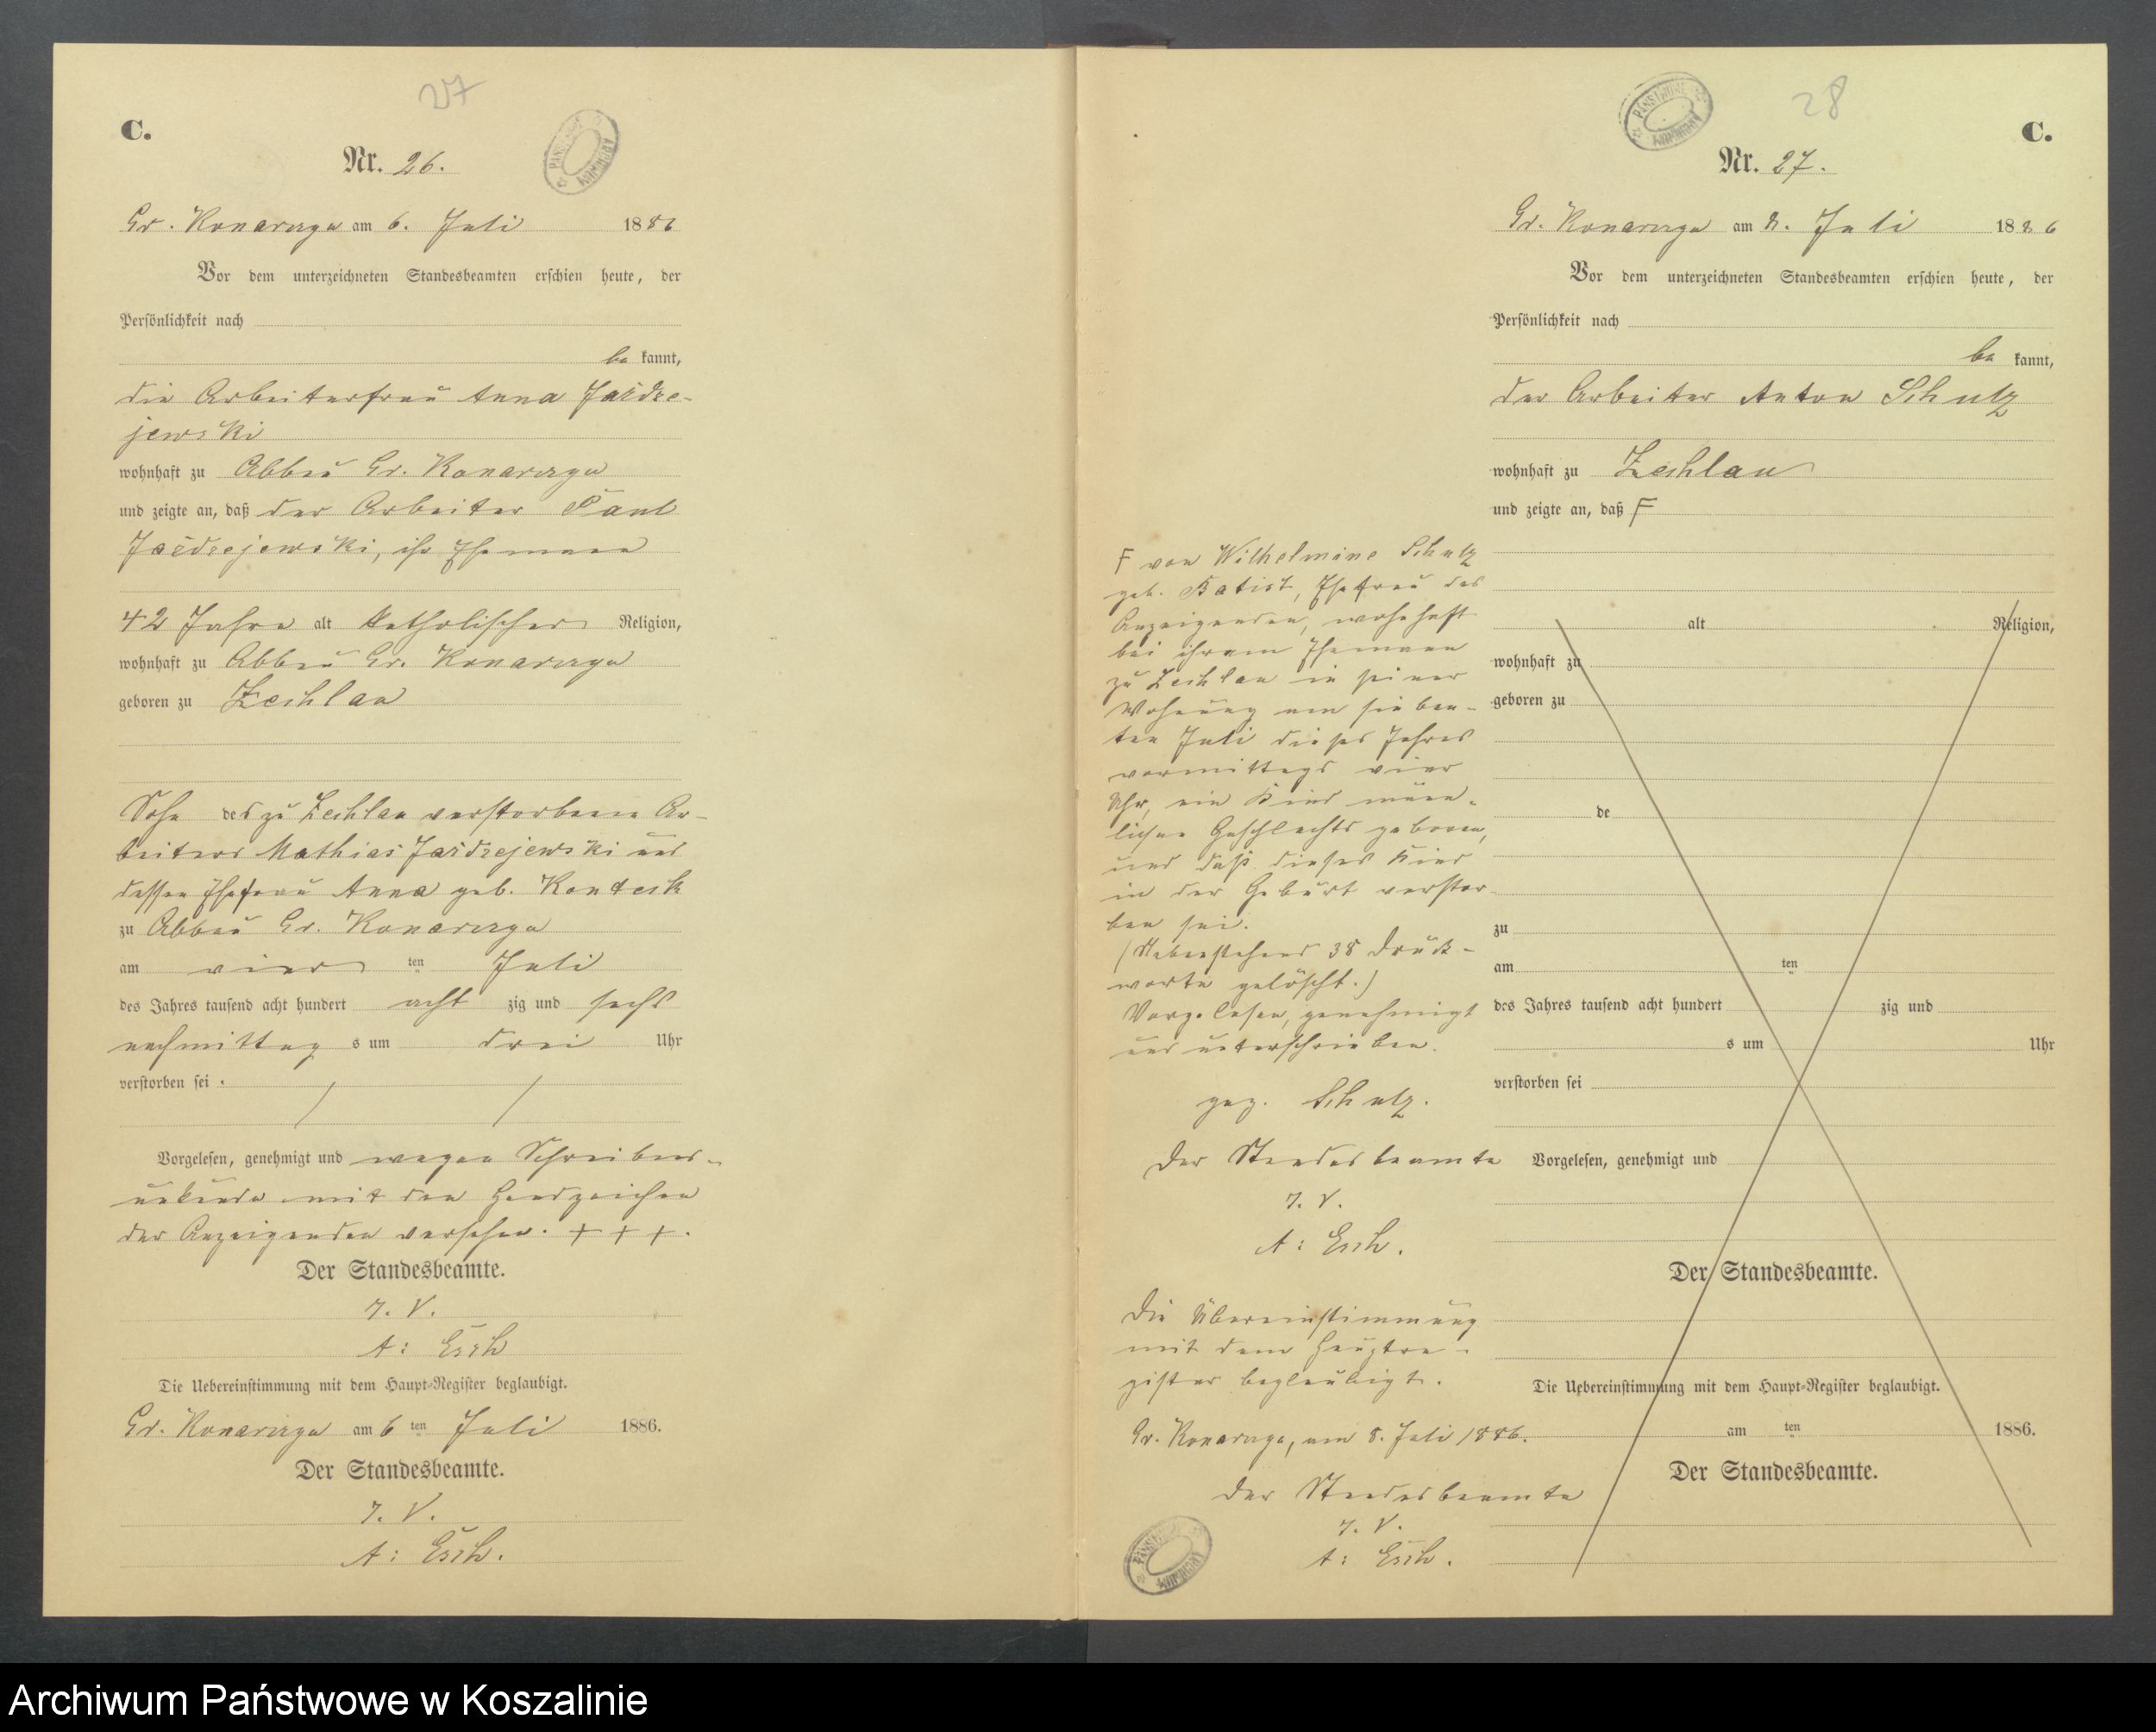 27
C.
Nr. 26.
Gr. Konarczyn am 6. Juli 1886
Vor dem unterzeichneten Standesbeamten erschien heute, der
Persönlichkeit nach
be kannt,
die Arbeiterfrau Anna Jazdze-
jewski
wohnhaft zu Abbau Gr. Konarczyn
und zeigte an, daß der Arbeiter Paul
Jazdzejewski, ihr Ehemann
42 Jahre alt katholischer Religion,
wohnhaft zu Abbau Gr. Konarczyn
geboren zu Zechlau
Sohn des zu Zechlau verstorbenen Ar-
beiters Mathias Jazdzejewski und
dessen Ehefrau Anna geb.
zu Abbau Gr. Konarczyn
am vier ten Juli
des Jahres tausend acht hundert acht zig und sechs
nachmittag s um drei Uhr
verstorben sei.
Vorgelesen, genehmigt und wegen Schreibens-
unkunde mit den Handzeichen
der Anzeigenden versehen. + + +.
Der Standesbeamte.
I. V.
A: Esch
Die Uebereinstimmung mit dem Haupt-Register beglaubigt.
Gr. Konarczyn am 6 ten Juli 1886.
Der Standesbeamte.
I. V.
A: Esch.
28
C.
Nr. 27.
Gr. Konarczyn am 8. Juli 1886
Vor dem unterzeichneten Standesbeamten erschien heute, der
Persönlichkeit nach
be kannt,
der Arbeiter Anton Schulz
wohnhaft zu Zechlau
und zeigte an, daß F
F von Wilhelmine Schulz
geb. , Ehefrau des
Anzeigenden, wohnhaft
bei ihrem Ehemann
zu Zechlau in seiner
Wohnung am sieben-
ten Juli dieses Jahres
vormittags vier
Uhr, ein Kind männ-
lichen Geschlechts geboren,
und daß dieses Kind
in der Geburt verstor-
ben sei.
(Nebenstehend 38 Druck-
worte gelöscht.)
Vorgelesen, genehmigt
und unterschrieben.
gez. Schulz.
Der Standesbeamte
I. V.
A: Esch.
Die Übereinstimmung
mit dem Hauptre-
gister beglaubigt.
Gr. Konarczyn, am 8. Juli 1886.
Der Standesbeamte
I. V.
A: Esch.
alt Religion,
wohnhaft zu
geboren zu
de
zu
am ten
des Jahres tausend acht hundert zig und
s um Uhr
verstorben sei
Vorgelesen, genehmigt und
Der Standesbeamte.
Die Uebereinstimmung mit dem Haupt-Register beglaubigt.
am ten 1886.
Der Standesbeamte.
Archiwum Państwowe w Koszalinie